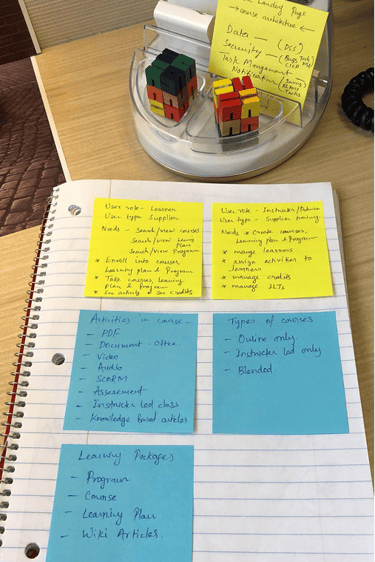 Landing Page
→ course architecture ←
Data — (DCS)
Security —
Task Management —
Notification
User role - Learner
User type - Supplier
Needs - Search/view courses
Search/view Learning Plan
Search/view Program
* Enroll into courses
Learning plan & Program
* Take courses, learning
Plan & Program
* See activity & see credits
User role - Instructor/
User type - Supplier training
Needs * Create courses,
Learning plan & Program
* manage learners
* assign activities to
learners
* manage credits
* manage ILTs
Activities in course -
- PDF
- Document - office
- Video
- Audio
- SCORM
- Assessment
- Instructor Led class
- Knowledge based articles
Types of courses
- Online only
- Instructor led only
- Blended
Learning Packages
- Program
- Course
- Learning Plan
- Wiki Articles